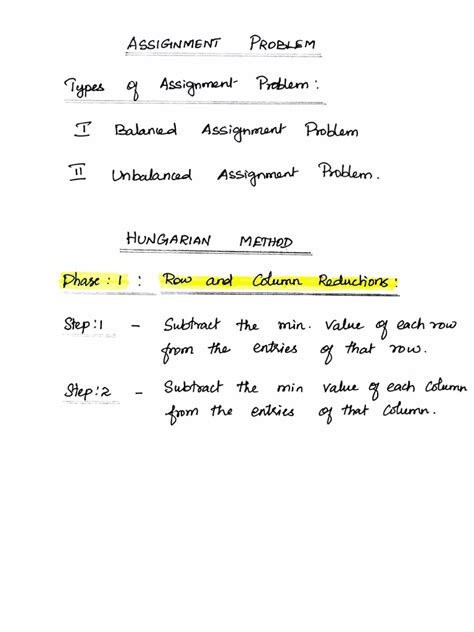 ASSIGNMENT PROBLEM
Types of Assignment Problem:
I Balanced Assignment Problem
II Unbalanced Assignment Problem.
HUNGARIAN METHOD
Phase: 1 : Row and Column Reductions:
Step:1 - Subtract the min. value of each row
from the entries of that row.
Step:2 - Subtract the min value of each Column
from the entries of that Column.